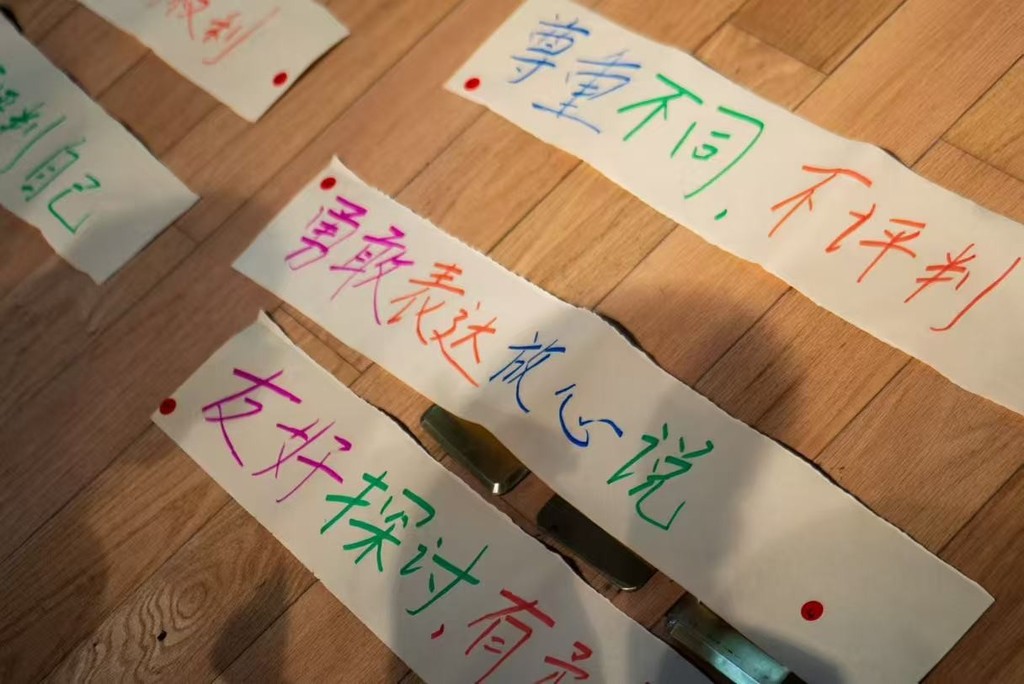 判
判自己
尊重不同,不评判
勇敢表达放心说
友好探讨,有